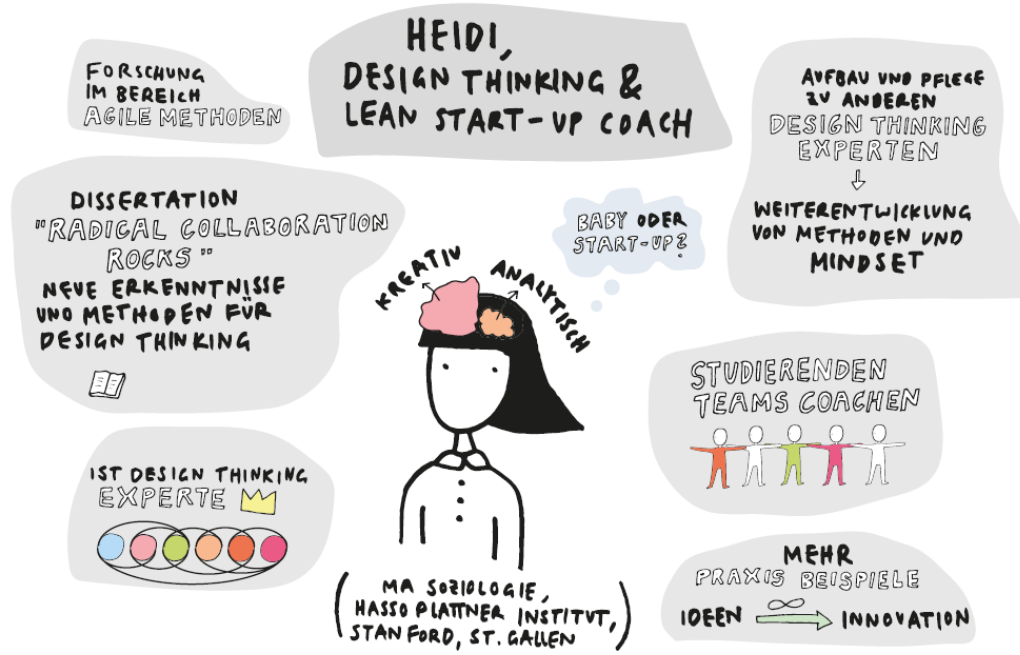 HEIDI,
DESIGN THINKING &
LEAN START-UP COACH
FORSCHUNG
IM BEREICH
AGILE METHODEN
DISSERTATION
"RADICAL COLLABORATION
ROCKS"
NEUE ERKENNTNISSE
UND METHODEN FÜR
DESIGN THINKING
IST DESIGN THINKING
EXPERTE
KREATIV
ANALYTISCH
BABY ODER
START-UP?
(MA SOZIOLOGIE,
HASSO PLATTNER INSTITUT,
STANFORD, ST. GALLEN)
AUFBAU UND PFLEGE
ZU ANDEREN
DESIGN THINKING
EXPERTEN
↓
WEITERENTWICKLUNG
VON METHODEN UND
MINDSET
STUDIERENDEN
TEAMS COACHEN
MEHR
PRAXIS BEISPIELE
∞
IDEEN → INNOVATION